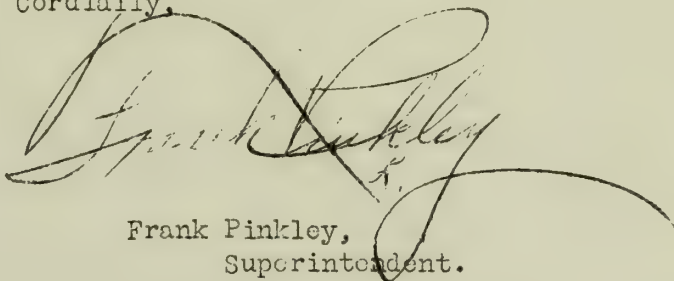 Cordially,
Frank Pinkley
K.
Frank Pinkley,
Superintendent.